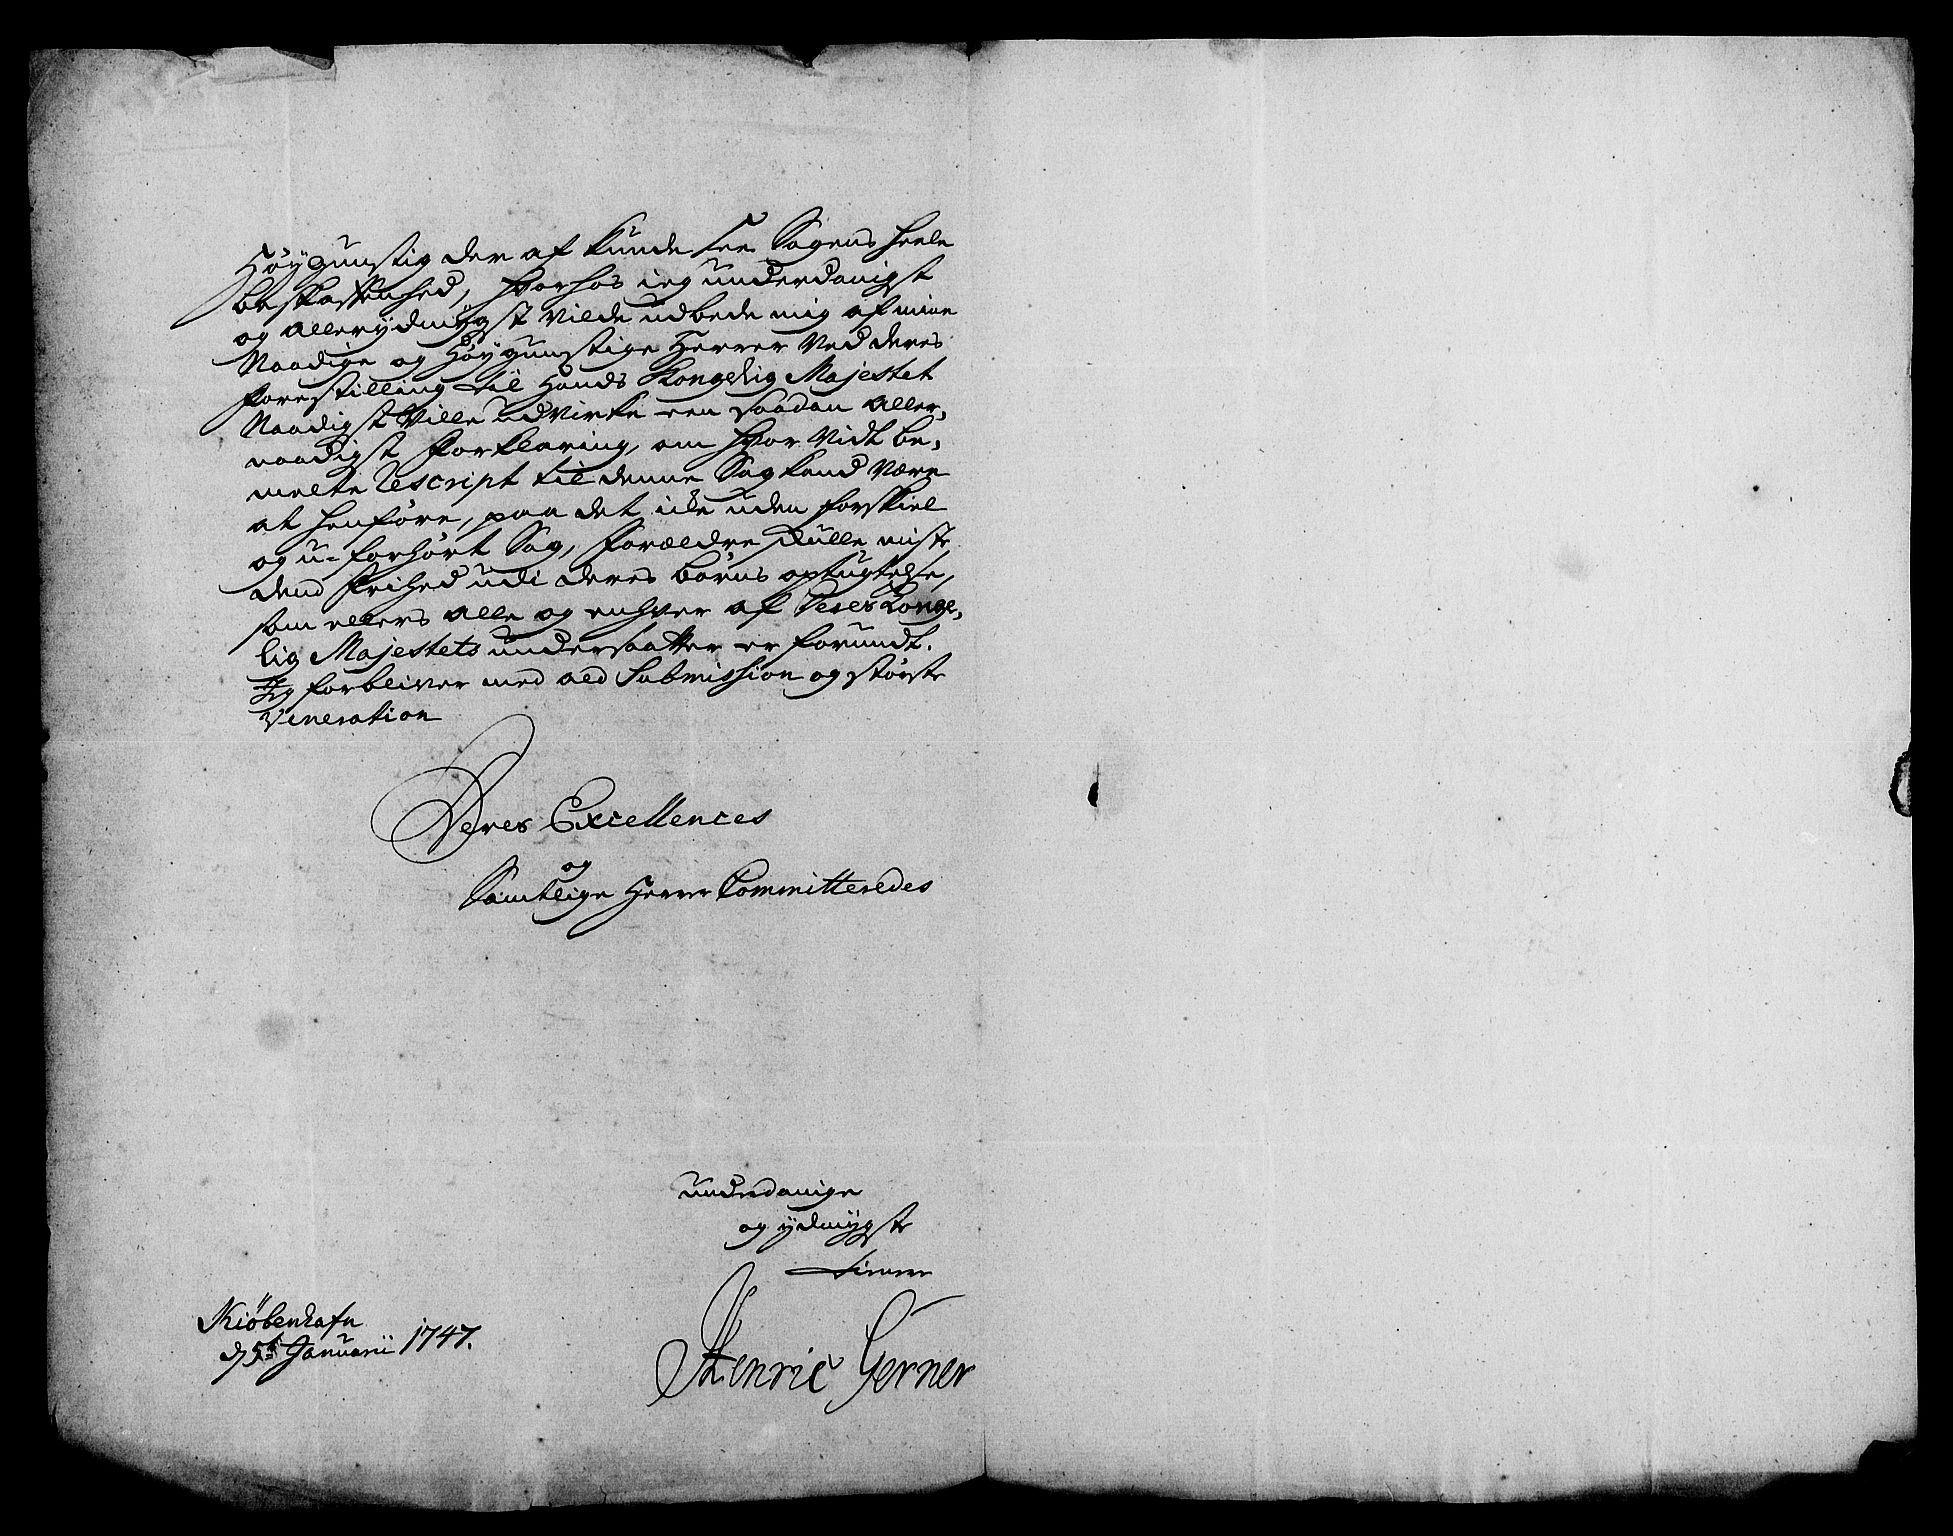 Høygunstig der af kunde see Sagens heele
beskaffenhed, hvorhos ieg underdanigst
og allerydmygst vilde udbede mig af mine
Naadige og Høygunstige Herrer Ved deres
forestilling til Hands Kongelig Majestet
Naadigst Ville udvirke een saadan aller-
naadigst forklaring, om hvor vidt be-
melte Rescript til denne Sag kand være
at henføre, paa det icke uden forskiel
og u-forhørt Sag, forældre skulle miste
dend frihed udi deres børns optugtelse,
som ellers alle og enhver af Deres Konge-
lig Majestets undersaatter er forundt.
Jeg forbliver med ald Submission og største
Veneration
Deres Excellences
og
Samtlige Herrer Committeredes
underdanige
og ydmygste
tiener
Kiöbenhafn
d 5t Januarii 1747.
Henric Gerner